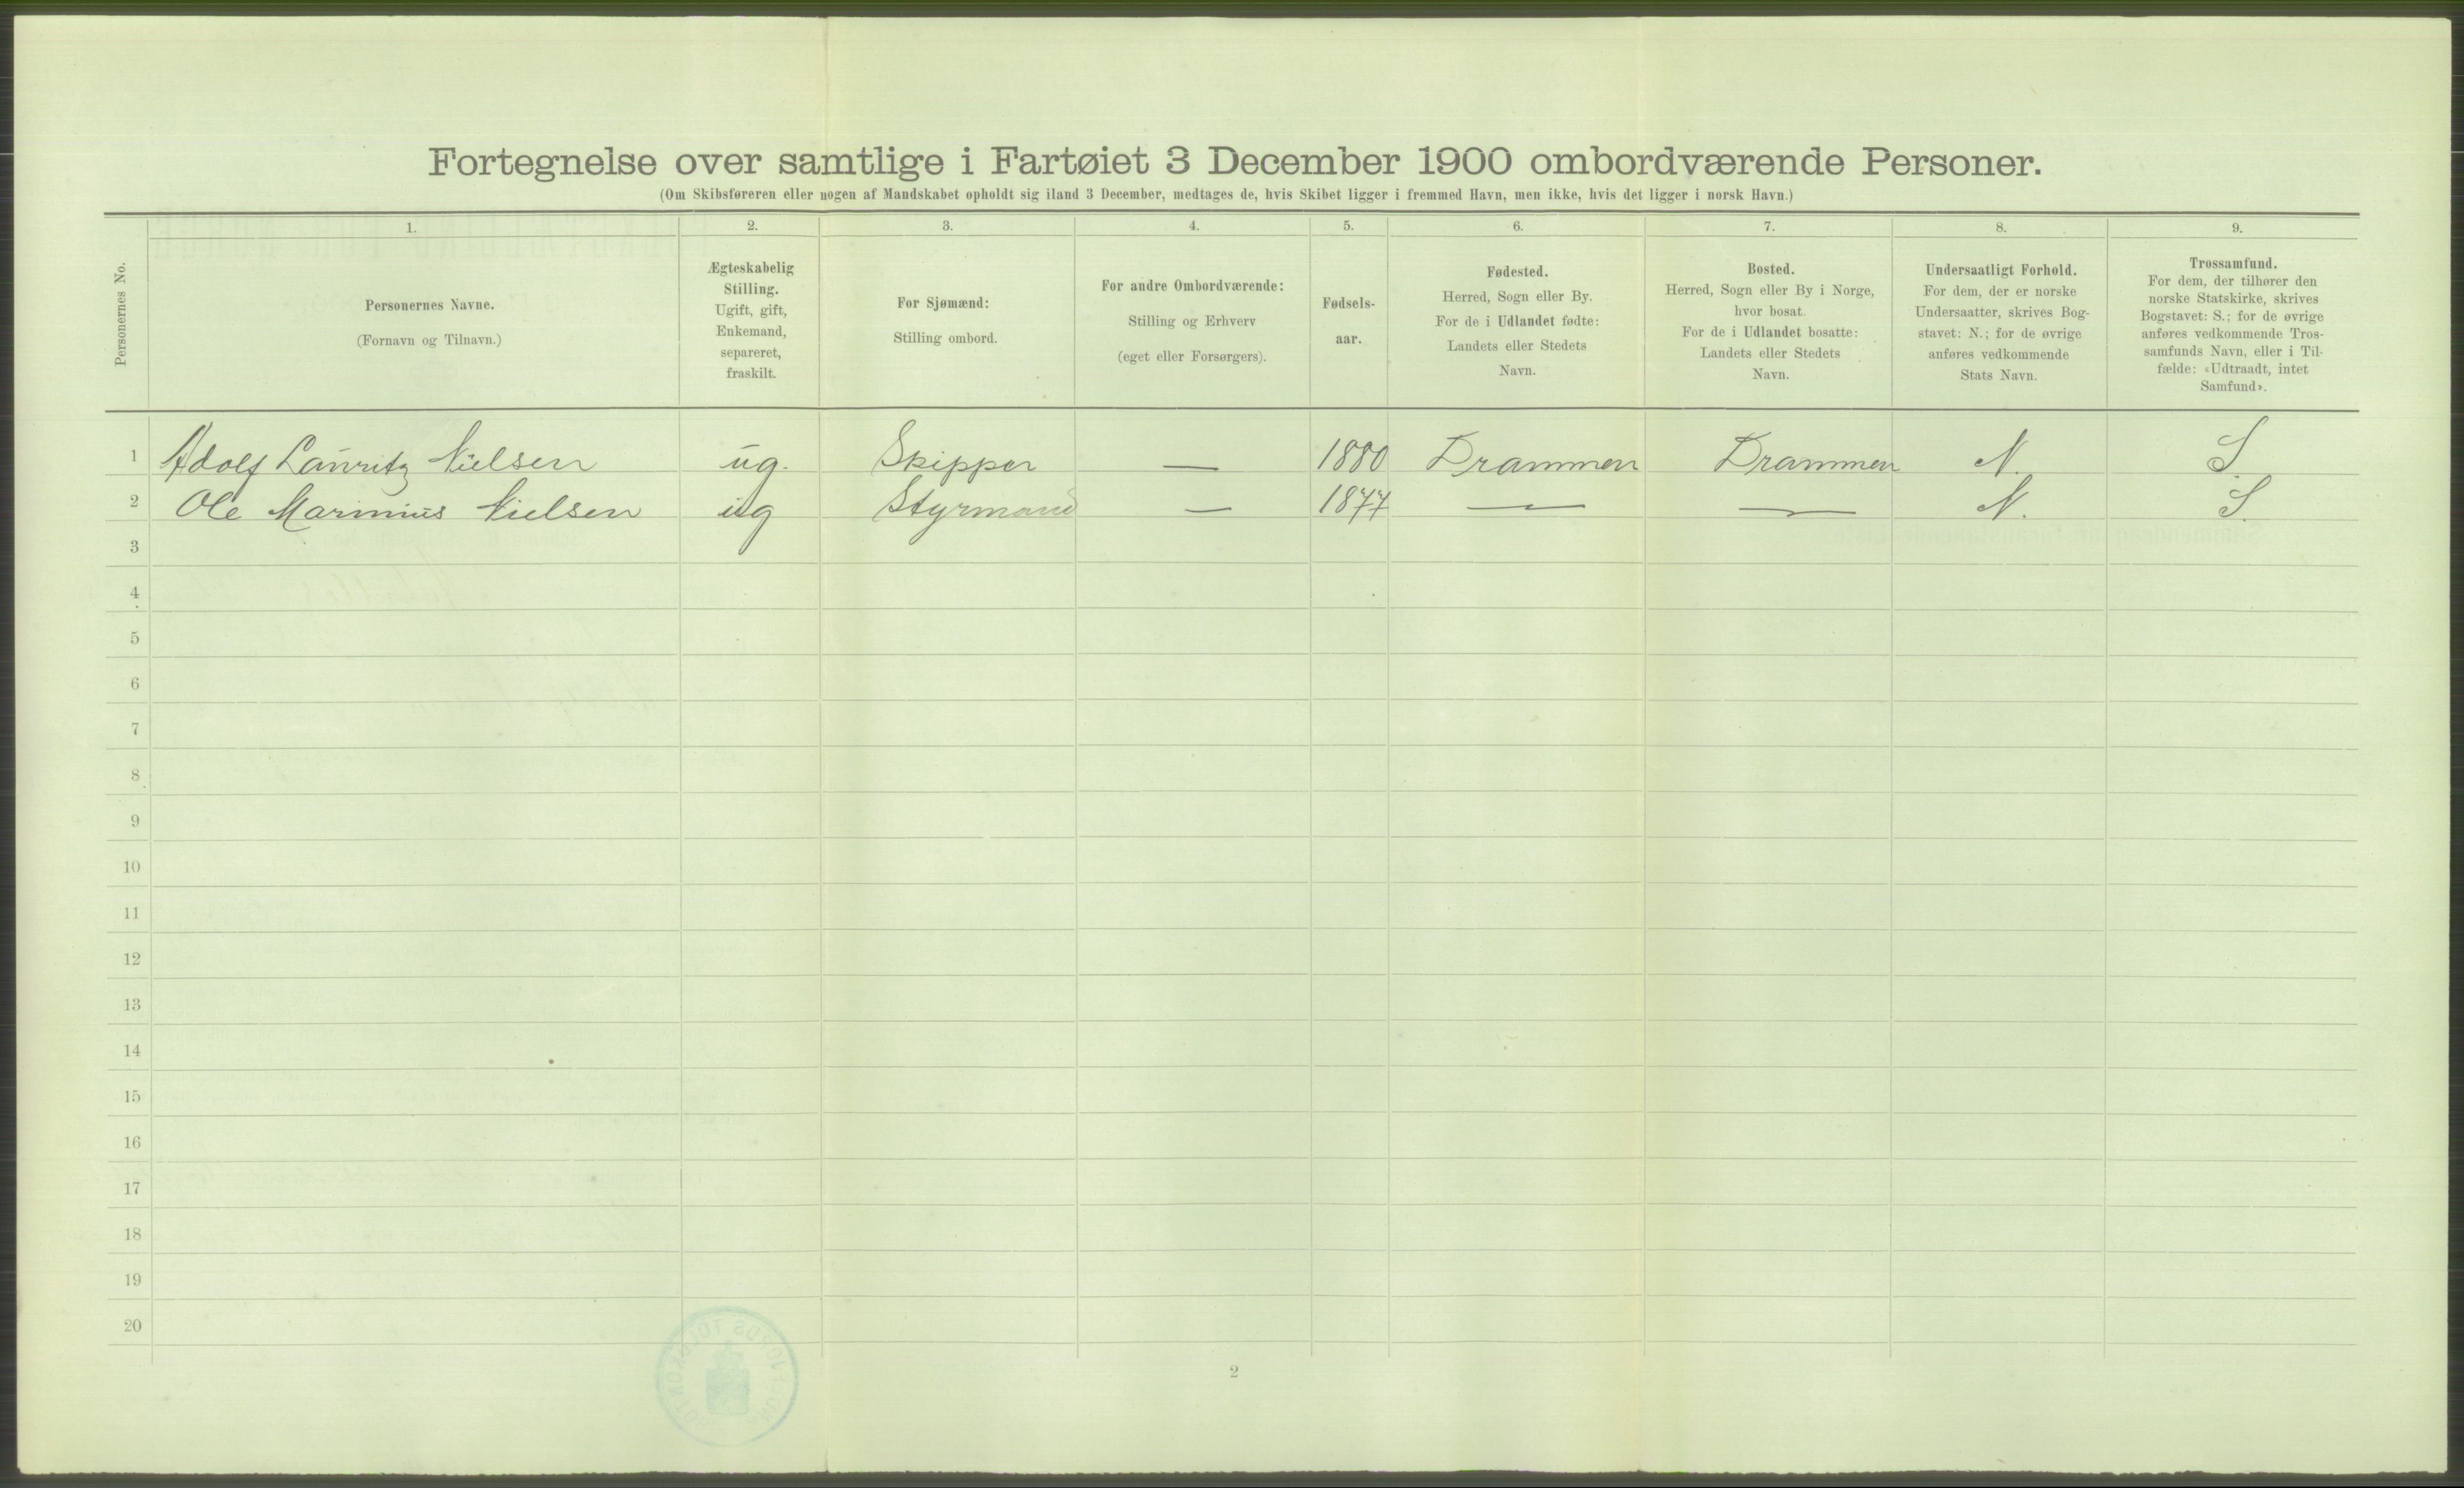 Fortegnelse over samtlige i Fartøiet 3 December 1900 ombordværende Personer.
(Om Skibsføreren eller nogen af Mandskabet opholdt sig iland 3 December, medtages de, hvis Skibet ligger i fremmed Havn, men ikke, hvis det ligger i norsk Havn.)
Personernes No.
1.
Personernes Navne.
(Fornavn og Tilnavn.)
2.
Ægteskabelig
Stilling.
Ugift, gift,
Enkemand,
separeret,
fraskilt.
3.
For Sjømænd:
Stilling ombord.
4.
For andre Ombordværende:
Stilling og Erhverv
(eget eller Forsørgers).
5.
Fødsels-
aar.
6.
Fødested.
Herred, Sogn eller By.
For de i Udlandet fødte:
Landets eller Stedets
Navn.
7.
Bosted.
Herred, Sogn eller By i Norge,
hvor bosat.
For de i Udlandet bosatte:
Landets eller Stedets
Navn.
8.
Undersaatligt Forhold.
For dem, der er norske
Undersaatter, skrives Bog-
stavet: N.; for de øvrige
anføres vedkommende
Stats Navn.
9.
Trossamfund.
For dem, der tilhører den
norske Statskirke, skrives
Bogstavet: S.; for de øvrige
anføres vedkommende Tros-
samfunds Navn, eller i Til-
fælde: «Udtraadt, intet
Samfund».
1 Adolf Lauritz Nielsen ug. Skipper — 1880 Drammen Drammen N. S.
2 Ole Marinius Nielsen ug Styrmand — 1877 — — N. S.
3
4
5
6
7
8
9
10
11
12
13
14
15
16
17
18
19
20
2